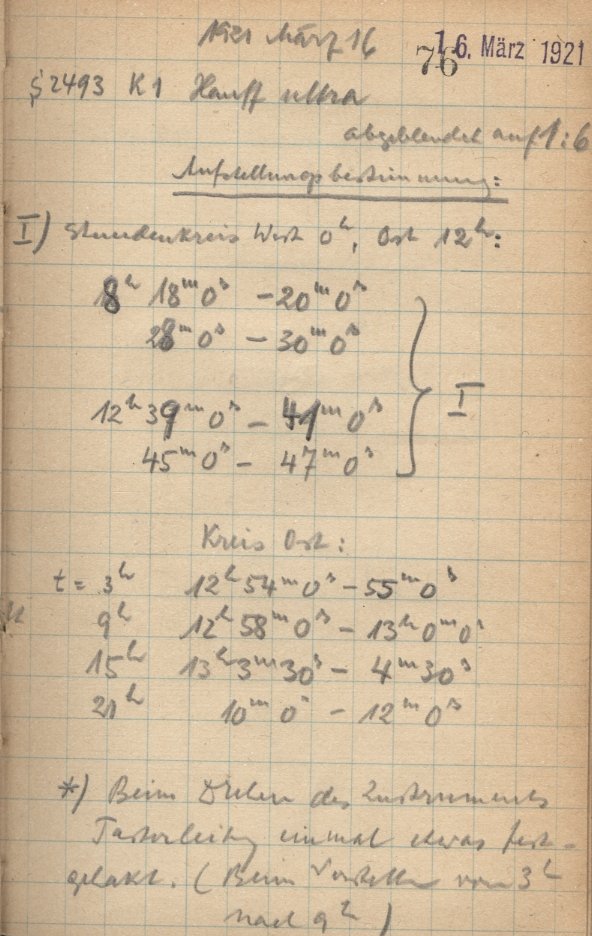 1921 März 16
16. März 1921
76
§ 2493 K1 Hauff ultra
abgeblendet auf 1:6
Aufstellungsbestimmung:
I) Stundenkreis West 0h, Ost 12h:
8h 18m 0s – 20m 0s
28m 0s – 30m 0s
12h 39m 0s – 41m 0s
45m 0s – 47m 0s
I
Kreis Ost:
t = 3h 12h 54m 0s – 55m 0s
9h 12h 58m 0s – 13h 0m 0s
15h 13h 3m 30s – 4m 30s
21h 10m 0s – 12m 0s
*) Beim Drehen des Instruments
Tasterleitg einmal etwas fest-
gehakt. (Beim Verstellen von 3h
nach 9h)